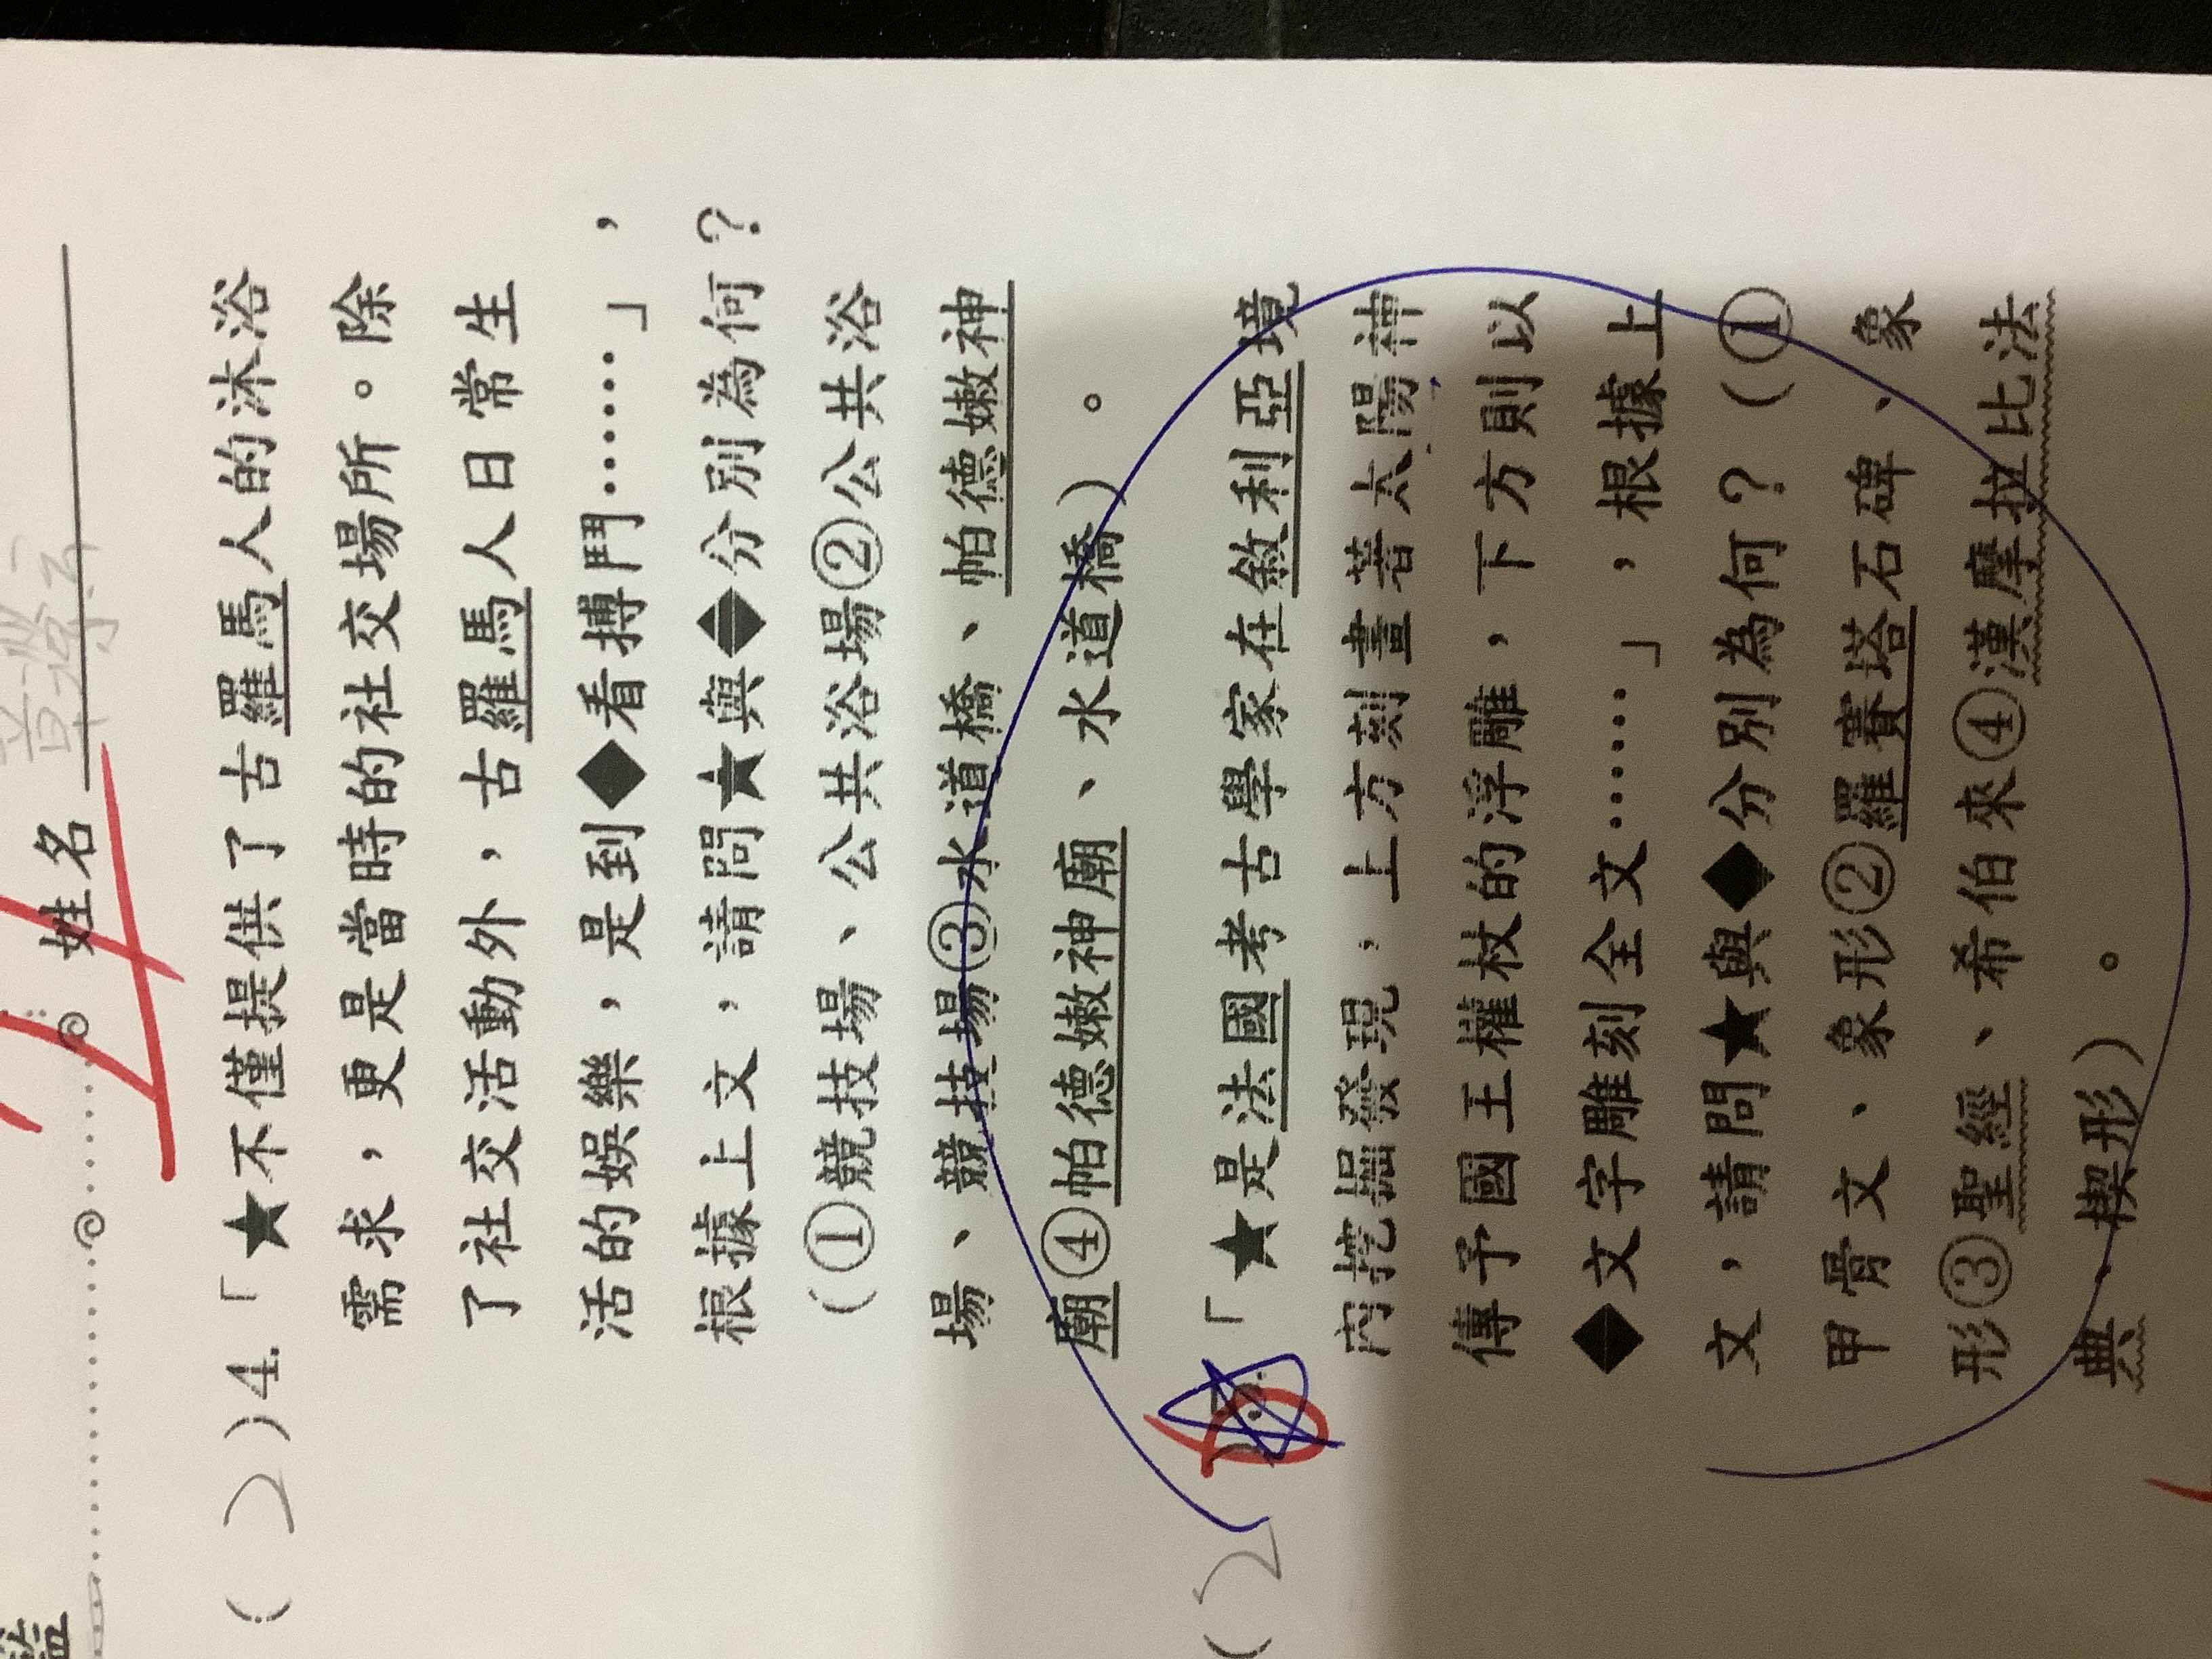 姓名
(2)4.「★不僅提供了古羅馬人的沐浴
需求，更是當時的社交場所。除
了社交活動外，古羅馬人日常生
活的娛樂，是到◆看搏鬥……」，
根據上文，請問★與◆分別為何？
(①競技場、公共浴場②公共浴
場、競技場③水道橋、帕德嫩神
廟④帕德嫩神廟、水道橋)。
(2)「★是法國考古學家在敘利亞境
內挖掘發現，上方刻畫著太陽神
傳予國王權杖的浮雕，下方則以
◆文字雕刻全文……」，根據上
文，請問★與◆分別為何？(①
甲骨文、象形②羅賽塔石碑、象
形③聖經、希伯來④漢摩拉比法
典、楔形)。